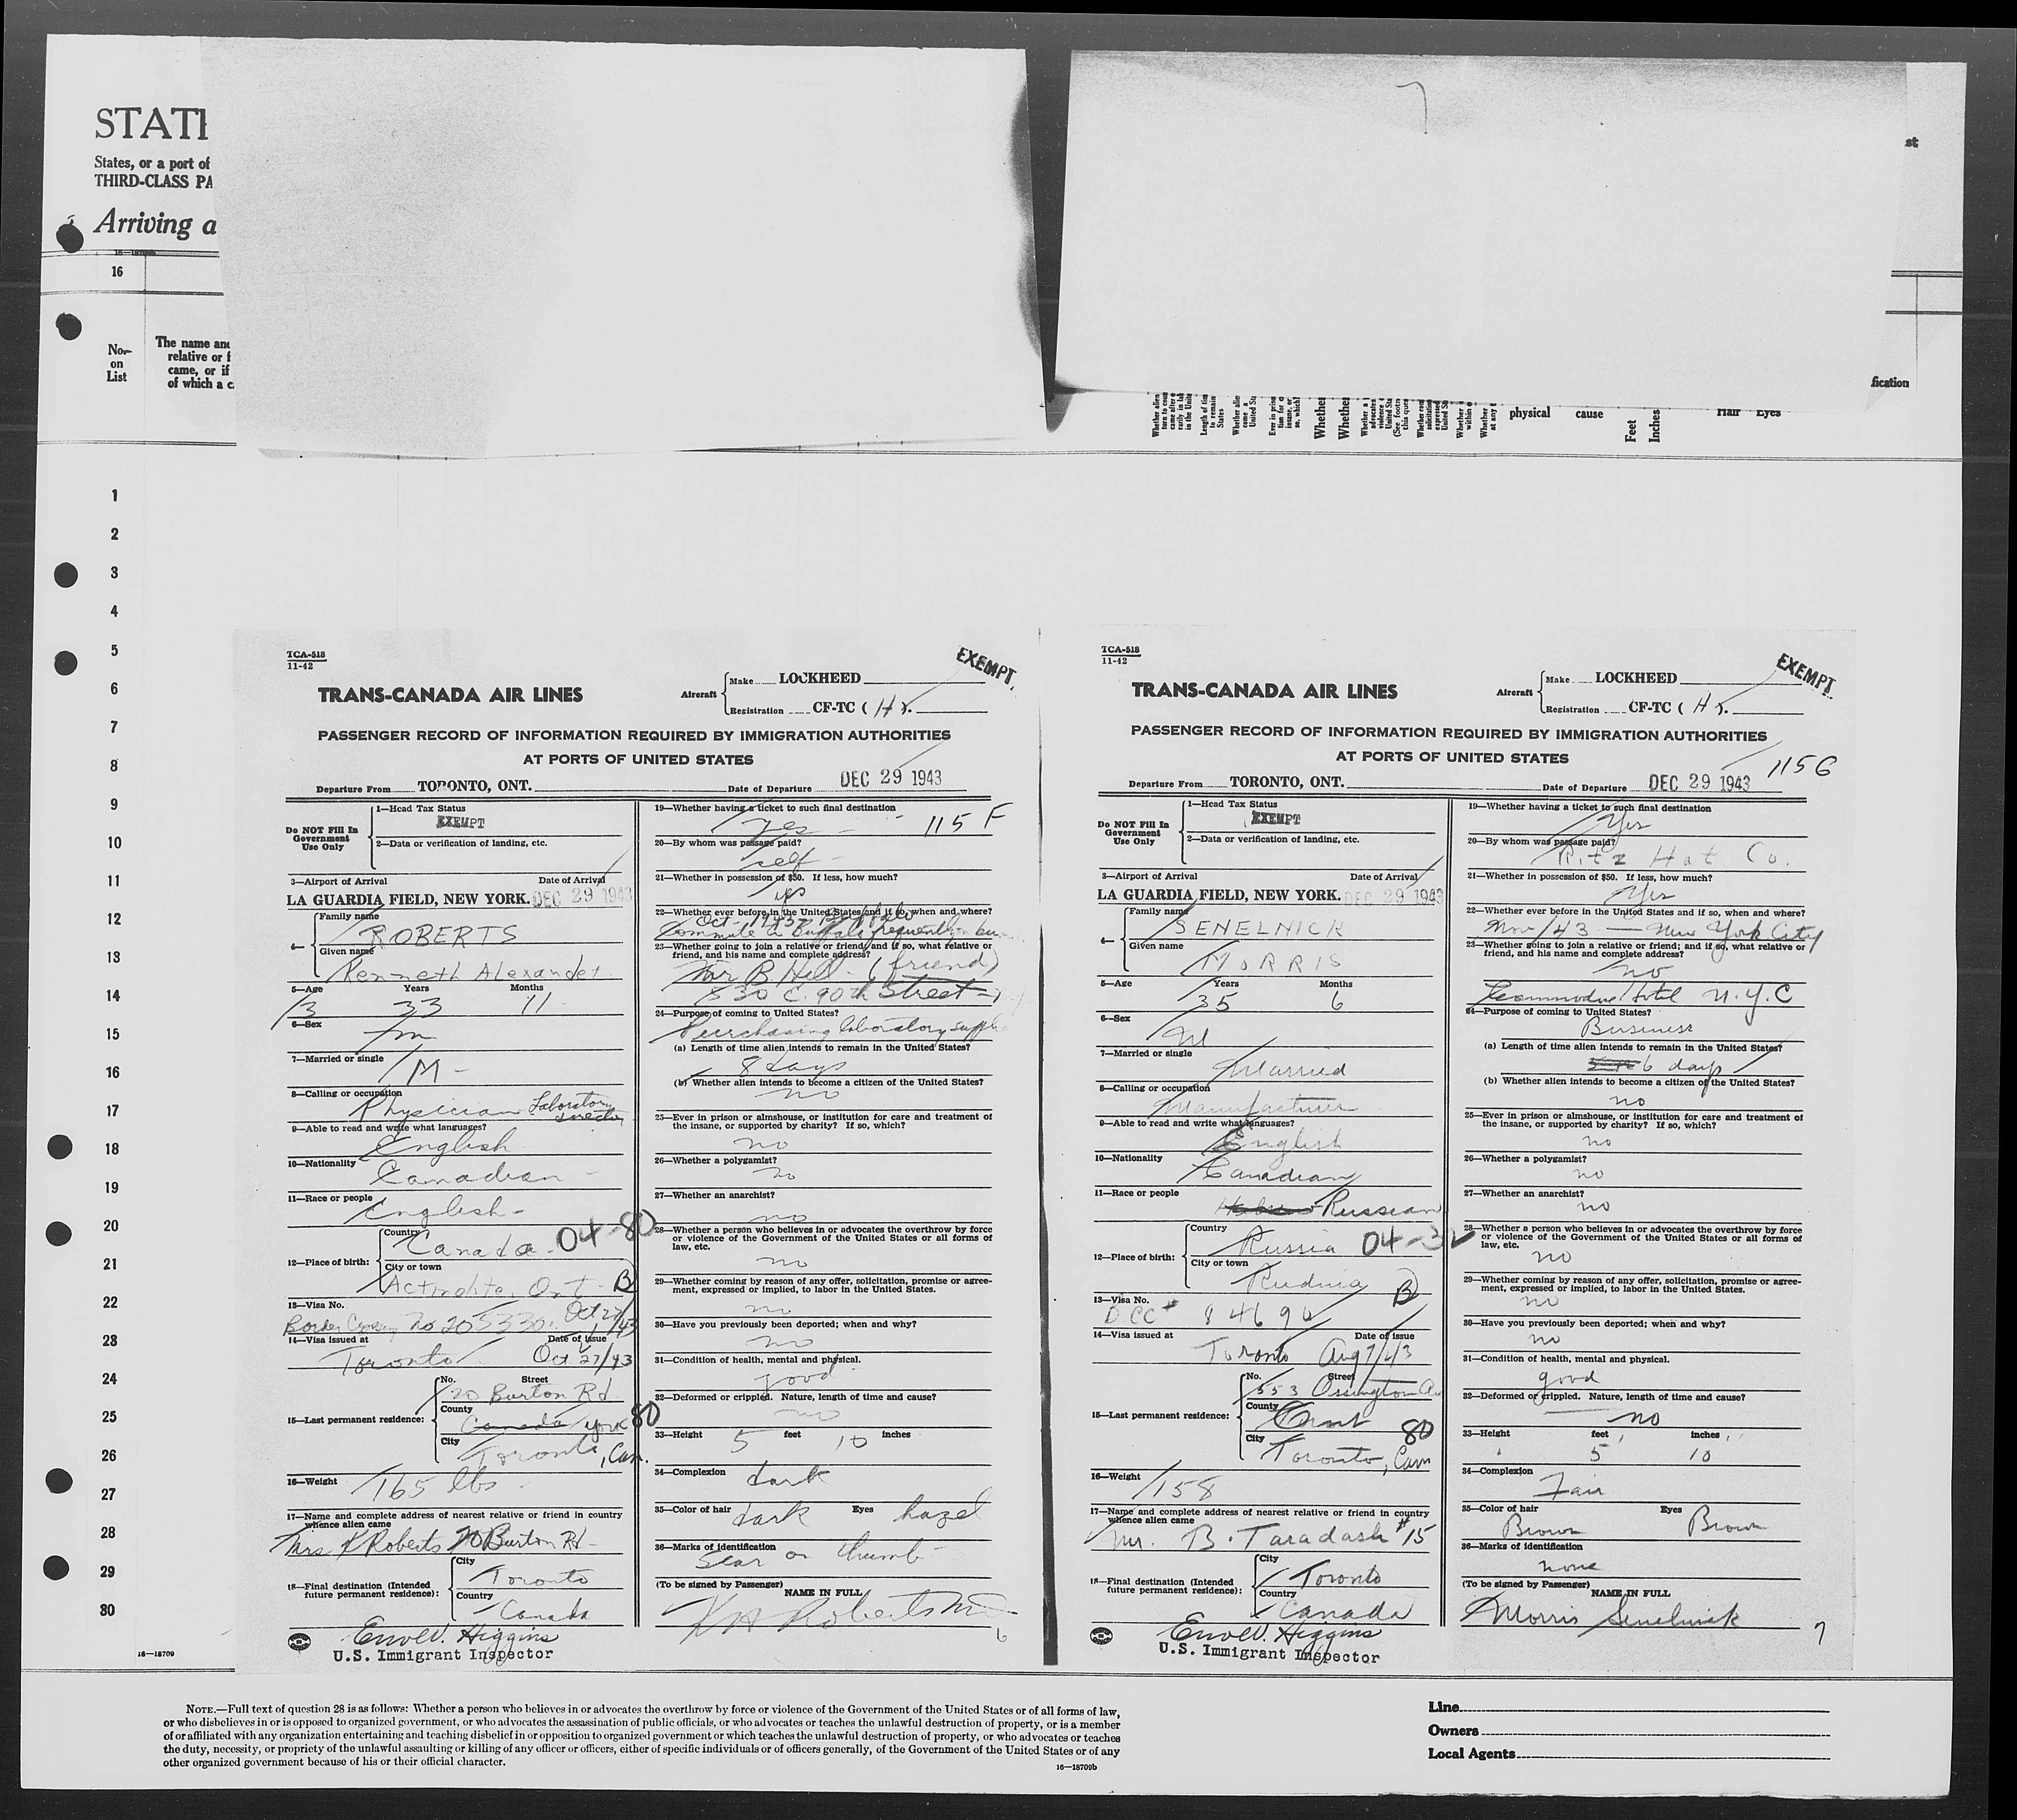 STATE
States, or a port of
THIRD-CLASS PA
Arriving a
16
No.
on
List
The name and
relative or f
came, or if
of which a c
st
fication
Whether
Whether
physical cause
Feet
Inches
Hair Eyes
1
2
3
4
5
6
7
8
9
10
11
12
13
14
15
16
17
18
19
20
21
22
28
24
25
26
27
28
29
80
16—18709
TCA-518
11-42
EXEMPT
TRANS-CANADA AIR LINES
Aircraft
Make LOCKHEED
Registration CF-TC (
PASSENGER RECORD OF INFORMATION REQUIRED BY IMMIGRATION AUTHORITIES
AT PORTS OF UNITED STATES
Departure From TORONTO, ONT. Date of Departure DEC 29 1943
Do NOT Fill In
Government
Use Only
1—Head Tax Status
EXEMPT
2—Data or verification of landing, etc.
3—Airport of Arrival Date of Arrival
LA GUARDIA FIELD, NEW YORK. DEC 29 1943
4—
Family name
ROBERTS
Given name
Kenneth Alexander
5—Age Years Months
33 11
6—Sex
m
7—Married or single
M -
8—Calling or occupation
Physician Laboratory
director
9—Able to read and write what languages?
English
10—Nationality
Canadian
11—Race or people
English
12—Place of birth:
Country
Canada 04-80
City or town
Actinolite, Ont B
13—Visa No.
Border Crossing No 205330, Oct 27/43
14—Visa issued at Date of issue
Toronto Oct 27/43
15—Last permanent residence:
No. Street
20 Burton Rd
County
Canada York 80
City
Toronto, Can.
16—Weight
165 lbs
17—Name and complete address of nearest relative or friend in country
whence alien came
Mrs K Roberts 20 Burton Rd
18—Final destination (Intended
future permanent residence):
City
Toronto
Country
Canada
Errol V. Higgins
U.S. Immigrant Inspector
19—Whether having a ticket to such final destination
yes 115 F
20—By whom was passage paid?
self
21—Whether in possession of $50. If less, how much?
yes
22—Whether ever before in the United States and if so, when and where?
Oct 1943 Buffalo
Commute to Buffalo frequently on
23—Whether going to join a relative or friend; and if so, what relative or
friend, and his name and complete address?
Mr B. Hill - (friend)
530 E. 90th Street
24—Purpose of coming to United States?
Purchasing laboratory
(a) Length of time alien intends to remain in the United States?
8 days
(b) Whether alien intends to become a citizen of the United States?
no
25—Ever in prison or almshouse, or institution for care and treatment of
the insane, or supported by charity? If so, which?
no
26—Whether a polygamist?
no
27—Whether an anarchist?
no
28—Whether a person who believes in or advocates the overthrow by force
or violence of the Government of the United States or all forms of
law, etc.
no
29—Whether coming by reason of any offer, solicitation, promise or agree-
ment, expressed or implied, to labor in the United States.
no
30—Have you previously been deported; when and why?
no
31—Condition of health, mental and physical.
good
32—Deformed or crippled. Nature, length of time and cause?
no
33—Height 5 feet 10 inches
34—Complexion dark
35—Color of hair dark Eyes hazel
36—Marks of identification
Scar on thumb
(To be signed by Passenger)
NAME IN FULL
K A Roberts MD
6
TCA-518
11-42
EXEMPT
TRANS-CANADA AIR LINES
Aircraft
Make LOCKHEED
Registration CF-TC (
PASSENGER RECORD OF INFORMATION REQUIRED BY IMMIGRATION AUTHORITIES
AT PORTS OF UNITED STATES
115G
Departure From TORONTO, ONT. Date of Departure DEC 29 1943
Do NOT Fill In
Government
Use Only
1—Head Tax Status
EXEMPT
2—Data or verification of landing, etc.
3—Airport of Arrival Date of Arrival
LA GUARDIA FIELD, NEW YORK. DEC 29 1943
4—
Family name
SENELNICK
Given name
MORRIS
5—Age Years Months
35 6
6—Sex
M
7—Married or single
Married
8—Calling or occupation
Manufacturer
9—Able to read and write what languages?
English
10—Nationality
Canadian
11—Race or people
Hebrew Russian
12—Place of birth:
Country
Russia 04-3
City or town
Rudnia B
13—Visa No.
DCC
14—Visa issued at Date of issue
Toronto Aug 7/43
15—Last permanent residence:
No. Street
553 Ossington Av
County
Ont 80
City
Toronto, Can
16—Weight
158
17—Name and complete address of nearest relative or friend in country
whence alien came
Mr. B. Taradash #15
18—Final destination (Intended
future permanent residence):
City
Toronto
Country
Canada
Errol V. Higgins
U.S. Immigrant Inspector
19—Whether having a ticket to such final destination
Yes
20—By whom was passage paid?
Ritz Hat Co.
21—Whether in possession of $50. If less, how much?
Yes
22—Whether ever before in the United States and if so, when and where?
Nov/43 — New York City
23—Whether going to join a relative or friend; and if so, what relative or
friend, and his name and complete address?
no
Commodore Hotel N.Y.C
24—Purpose of coming to United States?
Business
(a) Length of time alien intends to remain in the United States?
6 days
(b) Whether alien intends to become a citizen of the United States?
no
25—Ever in prison or almshouse, or institution for care and treatment of
the insane, or supported by charity? If so, which?
no
26—Whether a polygamist?
no
27—Whether an anarchist?
no
28—Whether a person who believes in or advocates the overthrow by force
or violence of the Government of the United States or all forms of
law, etc.
no
29—Whether coming by reason of any offer, solicitation, promise or agree-
ment, expressed or implied, to labor in the United States.
no
30—Have you previously been deported; when and why?
no
31—Condition of health, mental and physical.
good
32—Deformed or crippled. Nature, length of time and cause?
no
33—Height feet inches
5 10
34—Complexion
Fair
35—Color of hair Eyes
Brown Brown
36—Marks of identification
none
(To be signed by Passenger)
NAME IN FULL
Morris Senelnick
7
NOTE.—Full text of question 28 is as follows: Whether a person who believes in or advocates the overthrow by force or violence of the Government of the United States or of all forms of law,
or who disbelieves in or is opposed to organized government, or who advocates the assassination of public officials, or who advocates or teaches the unlawful destruction of property, or is a member
of or affiliated with any organization entertaining and teaching disbelief in or opposition to organized government or which teaches the unlawful destruction of property, or who advocates or teaches
the duty, necessity, or propriety of the unlawful assaulting or killing of any officer or officers, either of specific individuals or of officers generally, of the Government of the United States or of any
other organized government because of his or their official character.
16—18709b
Line
Owners
Local Agents